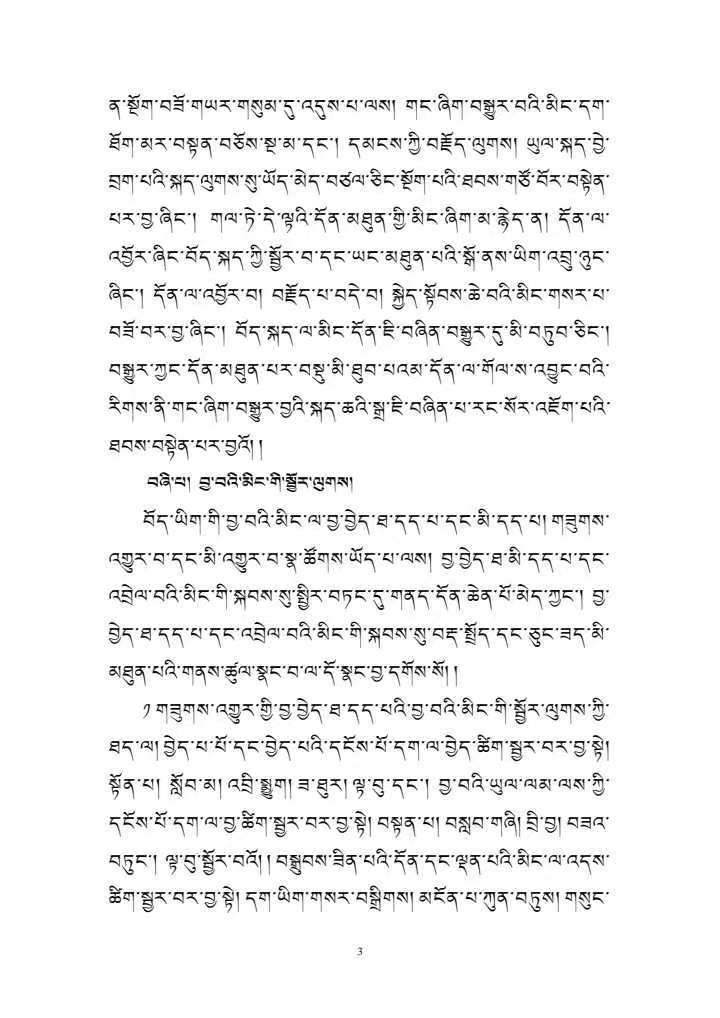 ན་སྔོག་བཟོ་གཡར་གསུམ་དུ་འདུས་པ་ལས། གང་ཞིག་བསྒྱུར་བའི་མིང་དག་
ཐོག་མར་བསྟན་བཅོས་སྔ་མ་དང་། དམངས་ཀྱི་བརྗོད་ལུགས། ཡུལ་སྐད་བྱེ་
བྲག་པའི་སྐད་ལུགས་སུ་ཡོད་མེད་བཙལ་ཅིང་སྔོག་པའི་ཐབས་གཙོ་བོར་བསྟེན་
པར་བྱ་ཞིང་། གལ་ཏེ་དེ་ལྟའི་དོན་མཐུན་གྱི་མིང་ཞིག་མ་རྙེད་ན། དོན་ལ་
འབྱོར་ཞིང་བོད་སྐད་ཀྱི་སྦྱོར་བ་དང་ཡང་མཐུན་པའི་སྒོ་ནས་ཡིག་འབྲུ་ཉུང་
ཞིང་། དོན་ལ་འབྱོར་བ། བརྗོད་པ་བདེ་བ། སྐྱེད་སྟོབས་ཆེ་བའི་མིང་གསར་པ་
བཟོ་བར་བྱ་ཞིང་། བོད་སྐད་ལ་མིང་དོན་ཇི་བཞིན་བསྒྱུར་དུ་མི་བཏུབ་ཅིང་།
བསྒྱུར་ཀྱང་དོན་མཐུན་པར་བསྡུ་མི་ཐུབ་པའམ་དོན་ལ་གོལ་ས་འབྱུང་བའི་
རིགས་ནི་གང་ཞིག་བསྒྱུར་བྱའི་སྐད་ཆའི་སྒྲ་ཇི་བཞིན་པ་རང་སོར་འཇོག་པའི་
ཐབས་བསྟེན་པར་བྱའོ། །
བཞི་པ། བྱ་བའི་མིང་གི་སྦྱོར་ལུགས།
བོད་ཡིག་གི་བྱ་བའི་མིང་ལ་བྱ་བྱེད་ཐ་དད་པ་དང་མི་དད་པ། གཟུགས་
འགྱུར་བ་དང་མི་འགྱུར་བ་སྣ་ཚོགས་ཡོད་པ་ལས། བྱ་བྱེད་ཐ་མི་དད་པ་དང་
འབྲེལ་བའི་མིང་གི་སྐབས་སུ་སྤྱིར་བཏང་དུ་གནད་དོན་ཆེན་པོ་མེད་ཀྱང་། བྱ་
བྱེད་ཐ་དད་པ་དང་འབྲེལ་བའི་མིང་གི་སྐབས་སུ་བརྡ་སྤྲོད་དང་ཅུང་ཟད་མི་
མཐུན་པའི་གནས་ཚུལ་སྣང་བ་ལ་དོ་སྣང་བྱ་དགོས་སོ། །
༡ གཟུགས་འགྱུར་གྱི་བྱ་བྱེད་ཐ་དད་པའི་བྱ་བའི་མིང་གི་སྦྱོར་ལུགས་ཀྱི་
ཐད་ལ། བྱེད་པ་པོ་དང་བྱེད་པའི་དངོས་པོ་དག་ལ་བྱེད་ཚིག་སྦྱར་བར་བྱ་སྟེ།
སྟོན་པ། སློབ་མ། འབྲི་སྨྱུག། ཟ་ཐུར། ལྟ་བུ་དང་། བྱ་བའི་ཡུལ་ལམ་ལས་ཀྱི་
དངོས་པོ་དག་ལ་བྱ་ཚིག་སྦྱར་བར་བྱ་སྟེ། བསྟན་པ། བསླབ་གཞི། བྲི་བྱ། བཟའ་
བཏུང་། ལྟ་བུ་སྦྱོར་བའོ། ། བསྒྲུབས་ཟིན་པའི་དོན་དང་ལྡན་པའི་མིང་ལ་འདས་
ཚིག་སྦྱར་བར་བྱ་སྟེ། དག་ཡིག་གསར་བསྒྲིགས། མངོན་པ་ཀུན་བཏུས། གསུང་
3